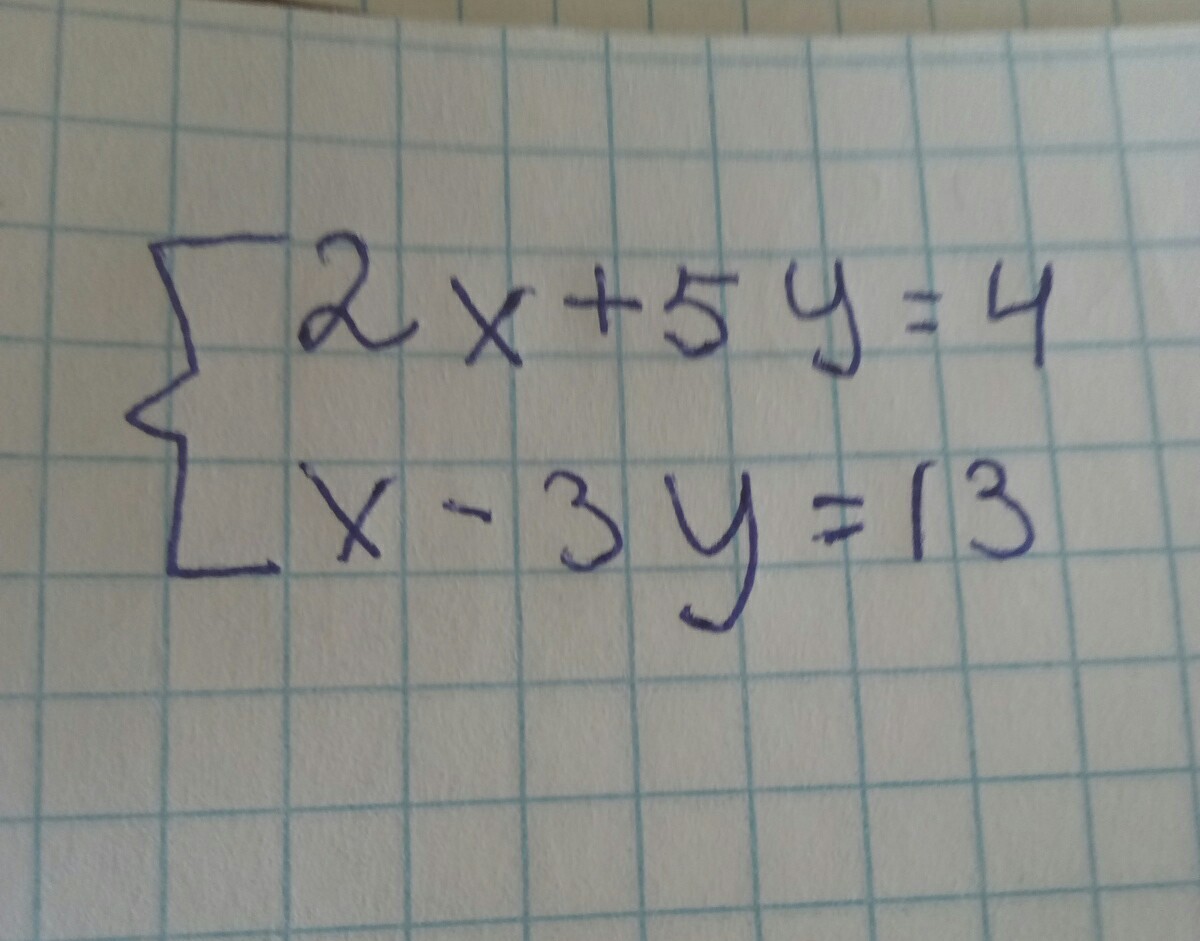 2x+5y=4
x-3y=13